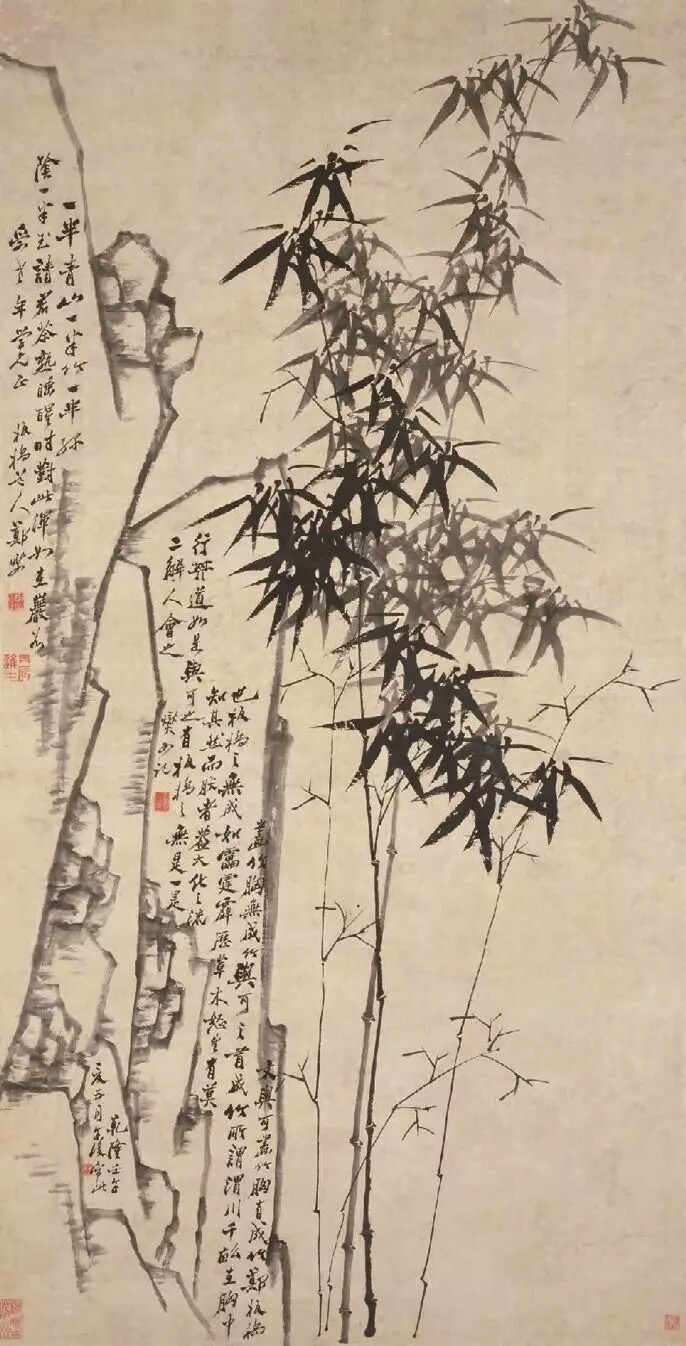 一半青山一半竹一半綠
陰一半玉請君茶熟睡醒時對此渾如在巖谷
年學兄正 板橋老人鄭燮
文與可畫竹胸有成竹鄭板橋
畫竹胸無成竹與可之有成竹所謂渭川千畝在胸中
也板橋之無成如雷霆霹靂草木怒生有莫
知其然而然者蓋大化之流
行其道如是與可之有板橋之無是一是
二解人會之 燮又記
乾隆壬午
五月